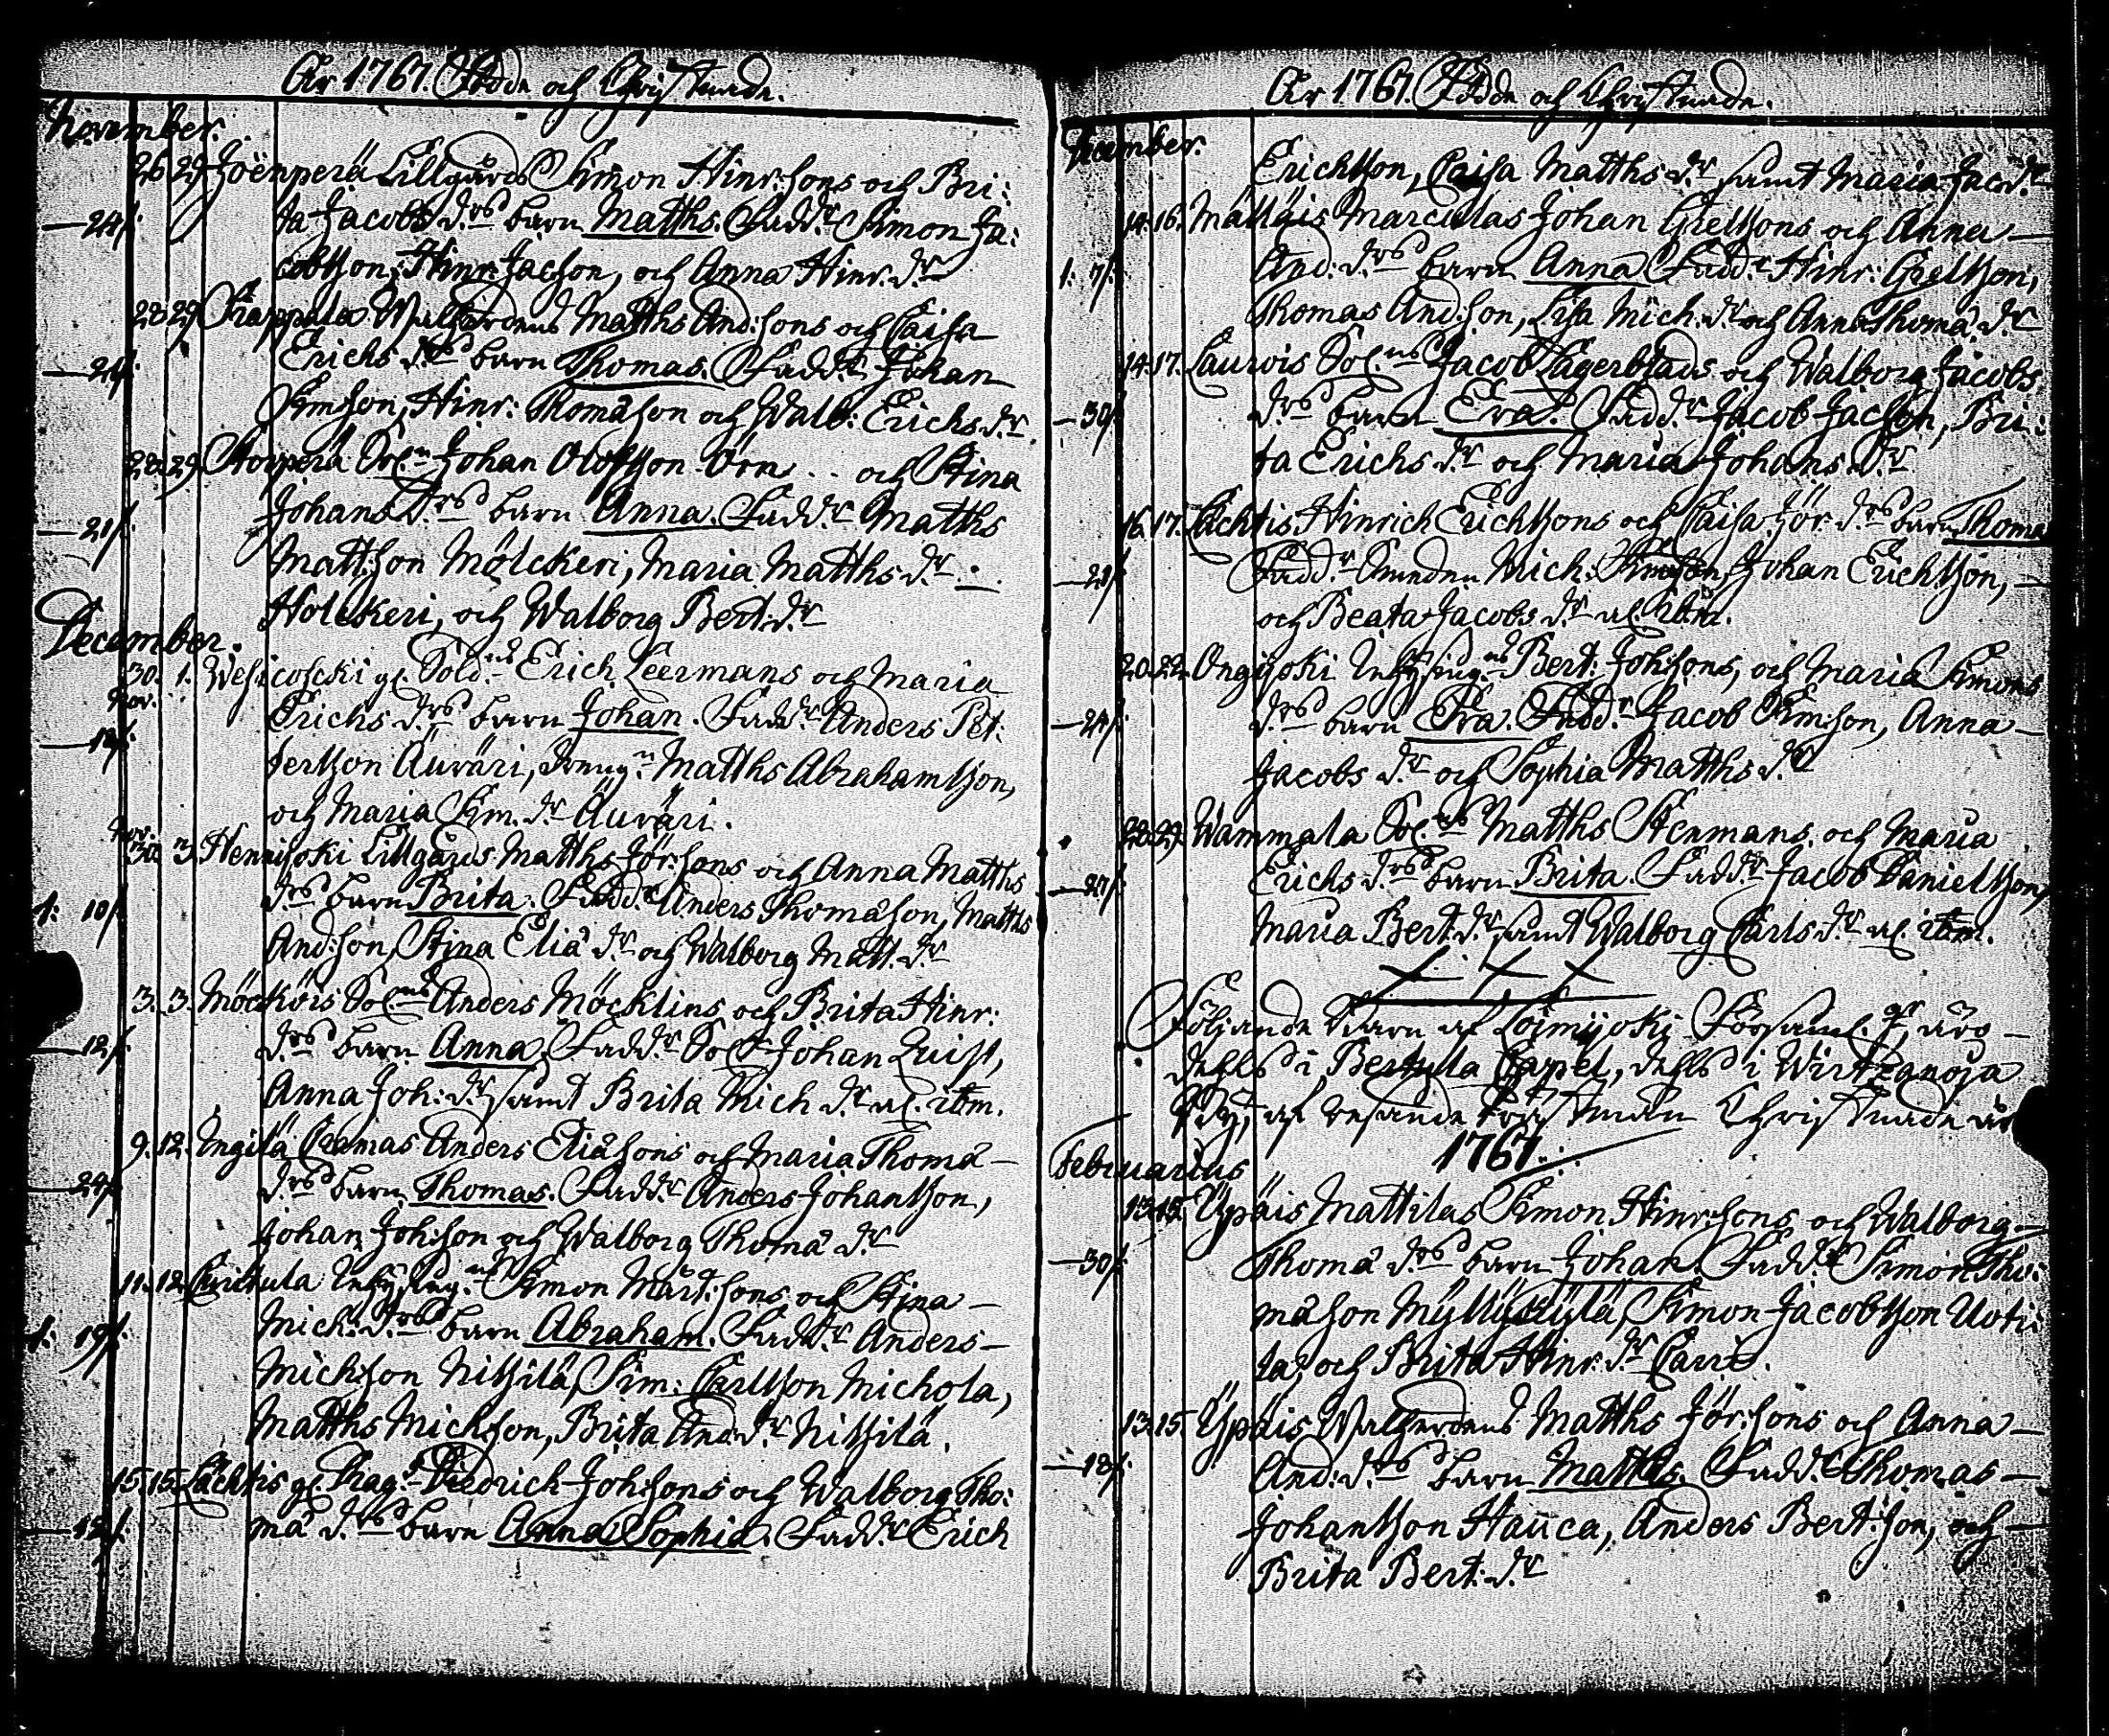 År 1767. Födde och Christnade.
November.
26. 29. Joenperä Lillgårds Simon Hinr:sons och Bri:
— 24/. ta Jacobs d:rs barn Matths. Fadd:r Simon Ja:
cobsson, Hinr: Jacson, och Anna Hinr: d:r
28. 29. Matths And:sons och Caisa
— 24/. Erichs d:rs barn Thomas. Fadd:r Johan
Simsson, Hinr: Thomæson och Walb: Erichs d:r
28. 29. Torpera Sol:n Johan Olofsson Örn .. och Stina
— 21/. Johans d:rs barn Anna. Fadd:r Matths
Mattsson Mölckeri, Maria Matths d:r
Holckeri, och Walborg Bert: d:r
December.
30. 1. gl. Sold:ns Erich Leermans och Maria
Nov.
Erichs d:rs barn Johan. Fadd:r Anders Pet:
tersson Äuväri, dreng:n Matths Abrahamsson,
och Maria Sim. d:r Äuväri.
Nov.
30. 3. Hennijoki Lillgårds Matths Jör:sons och Anna Matths
1: 10/. d:rs barn Brita. Fadd:r Anders Thomæson, Matths
And:son, Stina Eliæ d:r och Walborg Matt. d:r
3. 3. Möckörs Sol:ns Anders Möcklins och Brita Hinr:
— 12/. d:rs barn Anna. Fadd:r Sol:t Johan Quist,
Anna Joh: d:r samt Brita Mich d:r al. ibm.
9. 12. Ingilä Anders Eliæsons och Maria Thomæ
— 24/. d:rs barn Thomas. Fadd:r Anders Johansson,
Johan Joh:son och Walborg Thomæ d:r
11. 12. Inhysing:ns Simon Märt:sons och Stina —
1: 19/. Mich: d:rs barn Abraham. Fadd:r Anders —
Michson Nitsilä, Sim: Carlsson Michola,
Matths Michson, Brita And: d:r Nitsilä.
15. 15. Lächtis gl. Drag:s Diedrich Joh:sons och Walborg Tho:
mæ d:rs barn Anna Sophia. Fadd:r Erich
År 1767. Födde och Christnade.
December.
Erichsson, Caisa Matths d:r samt Maria Jac: d:r
14. 16. Mälläis Marculas Johan Grelssons och Anna —
1: 7/. And: d:rs barn Anna. Fadd:r Hinr: Grelsson,
Thomas And:son, Lisa Mich: d:r och Anna Thomæ d:r
14. 17. Laurois Sol:ns Jacob Lagerblads och Walborg Jacobs
— 30/. d:rs barn Eva. Fadd:r Jacob Jacson, Bri:
ta Erichs d:r och Maria Johans d:r
16. 17. Lächtis Hinrich Erichssons och Caisa Jör: d:rs barn Thoma
Fadd:r Mich: Simson, Johan Erichsson, —
och Beata Jacobs d:r al. ibm.
20. 22. Ongijoki Inhysing:ns Bert: Joh:sons, och Maria Simons
— 24/. d:rs barn Eva. Fadd:r Jacob Simson, Anna —
Jacobs d:r och Sophia Matths d:r
28. 29. Wammala Sol:ns Matths Stenmans och Maria
— 27/. Erichs d:rs barn Brita. Fadd:r Jacob Danielsson,
Maria Bert: d:r samt Walborg Carls d:r al. ibm.
Följande Barn af Loimijoki Församl:g, äro —
dehls i Bertula Capel, dehls i Wirtzanoja
By, af resande Prästmän Christnade år
1767.
Februarius
13. 15. Ypäis Mattilas Simon Hinr:sons och Walborg —
— 30/. Thomæ d:rs barn Johan. Fadd:r Simon Tho:
mæson Myllykylä, Simon Jacobsson Uoti:
la, och Brita Hinr: d:r
13. 15. Ypäis Matths Jör:sons och Anna —
— 18/. And: d:rs barn Matths. Fadd:r Thomas —
Johansson Hauca, Anders Bert:son, och —
Brita Bert: d:r